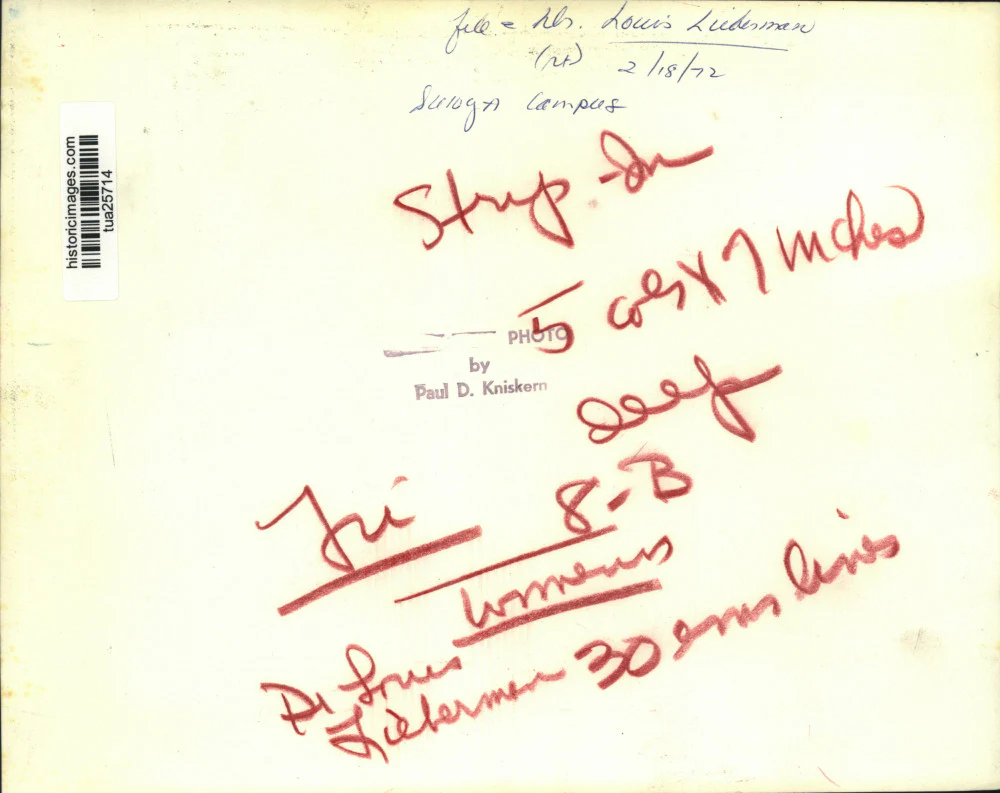 file = Dr. Louis Lieberman
(rt) 2/18/72
Campus
historicimages.com
tua25714
Strip-In
5 cols x 7 inches
deep
PHOTO
by
Paul D. Kniskern
Fri
8-B
Womens
Dr Louis
Lieberman 30 ems lines